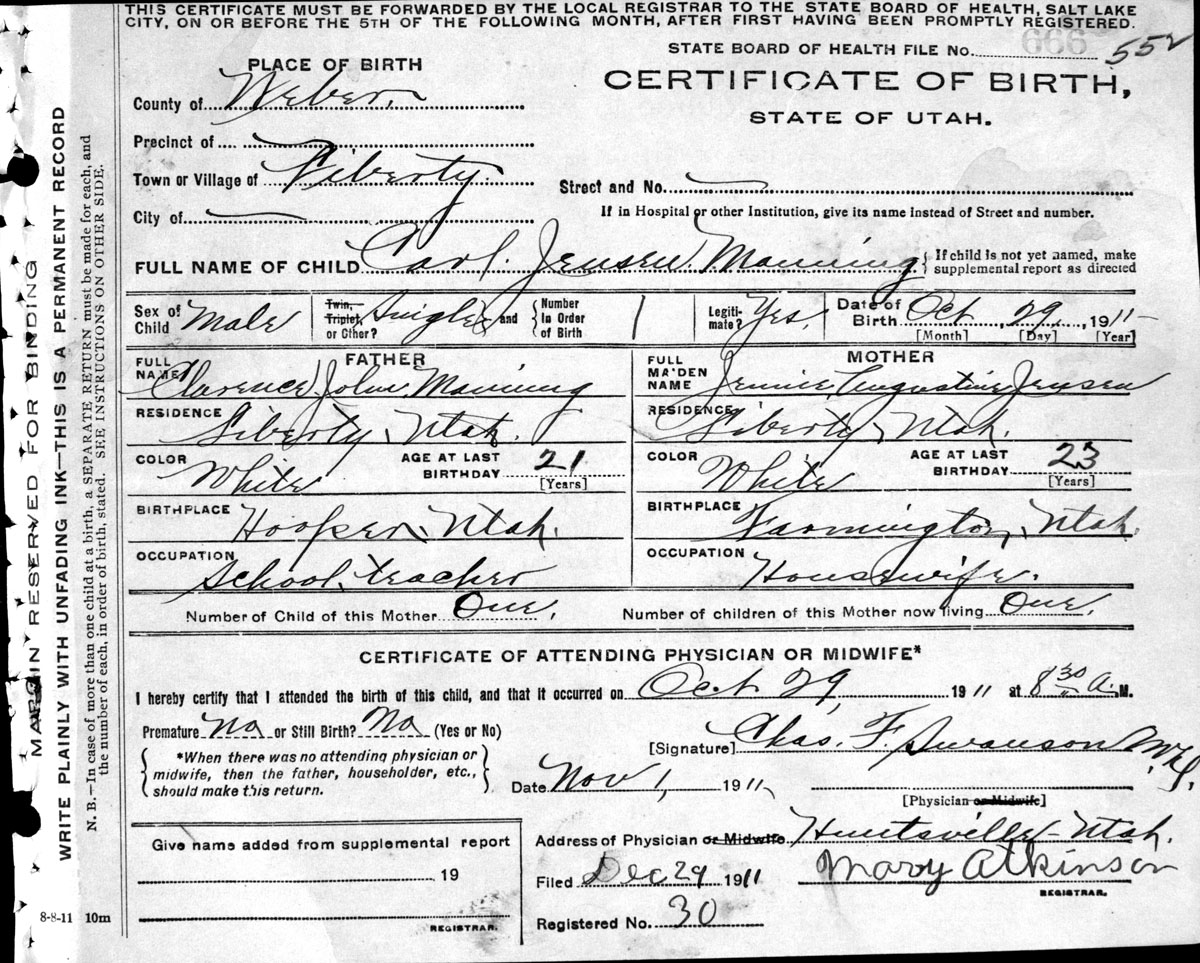 THIS CERTIFICATE MUST BE FORWARDED BY THE LOCAL REGISTRAR TO THE STATE BOARD OF HEALTH, SALT LAKE
CITY, ON OR BEFORE THE 5TH OF THE FOLLOWING MONTH, AFTER FIRST HAVING BEEN PROMPTLY REGISTERED.
STATE BOARD OF HEALTH FILE No. 666 552
PLACE OF BIRTH
CERTIFICATE OF BIRTH,
STATE OF UTAH.
County of Weber.
Precinct of
Town or Village of Liberty.
Street and No.
City of
If in Hospital or other Institution, give its name instead of Street and number.
FULL NAME OF CHILD Carl Jensen Manning { If child is not yet named, make
supplemental report as directed
Sex of Child Male
Twin, Triplet, or Other? Single and { Number In Order of Birth
Legitimate? Yes.
Date of Birth Oct 29, 1911
[Month] [Day] [Year]
FATHER
FULL NAME Clarence John Manning
RESIDENCE Liberty, Utah.
COLOR White
AGE AT LAST BIRTHDAY 21
[Years]
BIRTHPLACE Hooper, Utah.
OCCUPATION School teacher
MOTHER
FULL MAIDEN NAME Jennie Augustine Jensen
RESIDENCE Liberty, Utah.
COLOR White
AGE AT LAST BIRTHDAY 23
[Years]
BIRTHPLACE Farmington, Utah.
OCCUPATION Housewife.
Number of Child of this Mother One. Number of children of this Mother now living One.
CERTIFICATE OF ATTENDING PHYSICIAN OR MIDWIFE*
I hereby certify that I attended the birth of this child, and that it occurred on Oct 29, 1911 at 8 30 a. M.
Premature No or Still Birth? No (Yes or No)
[Signature] Chas. F. Swanson M.D.
*When there was no attending physician or
midwife, then the father, householder, etc.,
should make this return.
Date Nov 1, 1911
[Physician or Midwife]
Address of Physician or Midwife Huntsville - Utah.
Give name added from supplemental report
19
REGISTRAR.
Filed Dec 29 1911 Mary Atkinson
REGISTRAR.
Registered No. 30
8-8-11 10m
MARGIN RESERVED FOR BINDING
WRITE PLAINLY WITH UNFADING INK—THIS IS A PERMANENT RECORD
N. B.—In case of more than one child at a birth, a SEPARATE RETURN must be made for each, and
the number of each, in order of birth, stated. SEE INSTRUCTIONS ON OTHER SIDE.